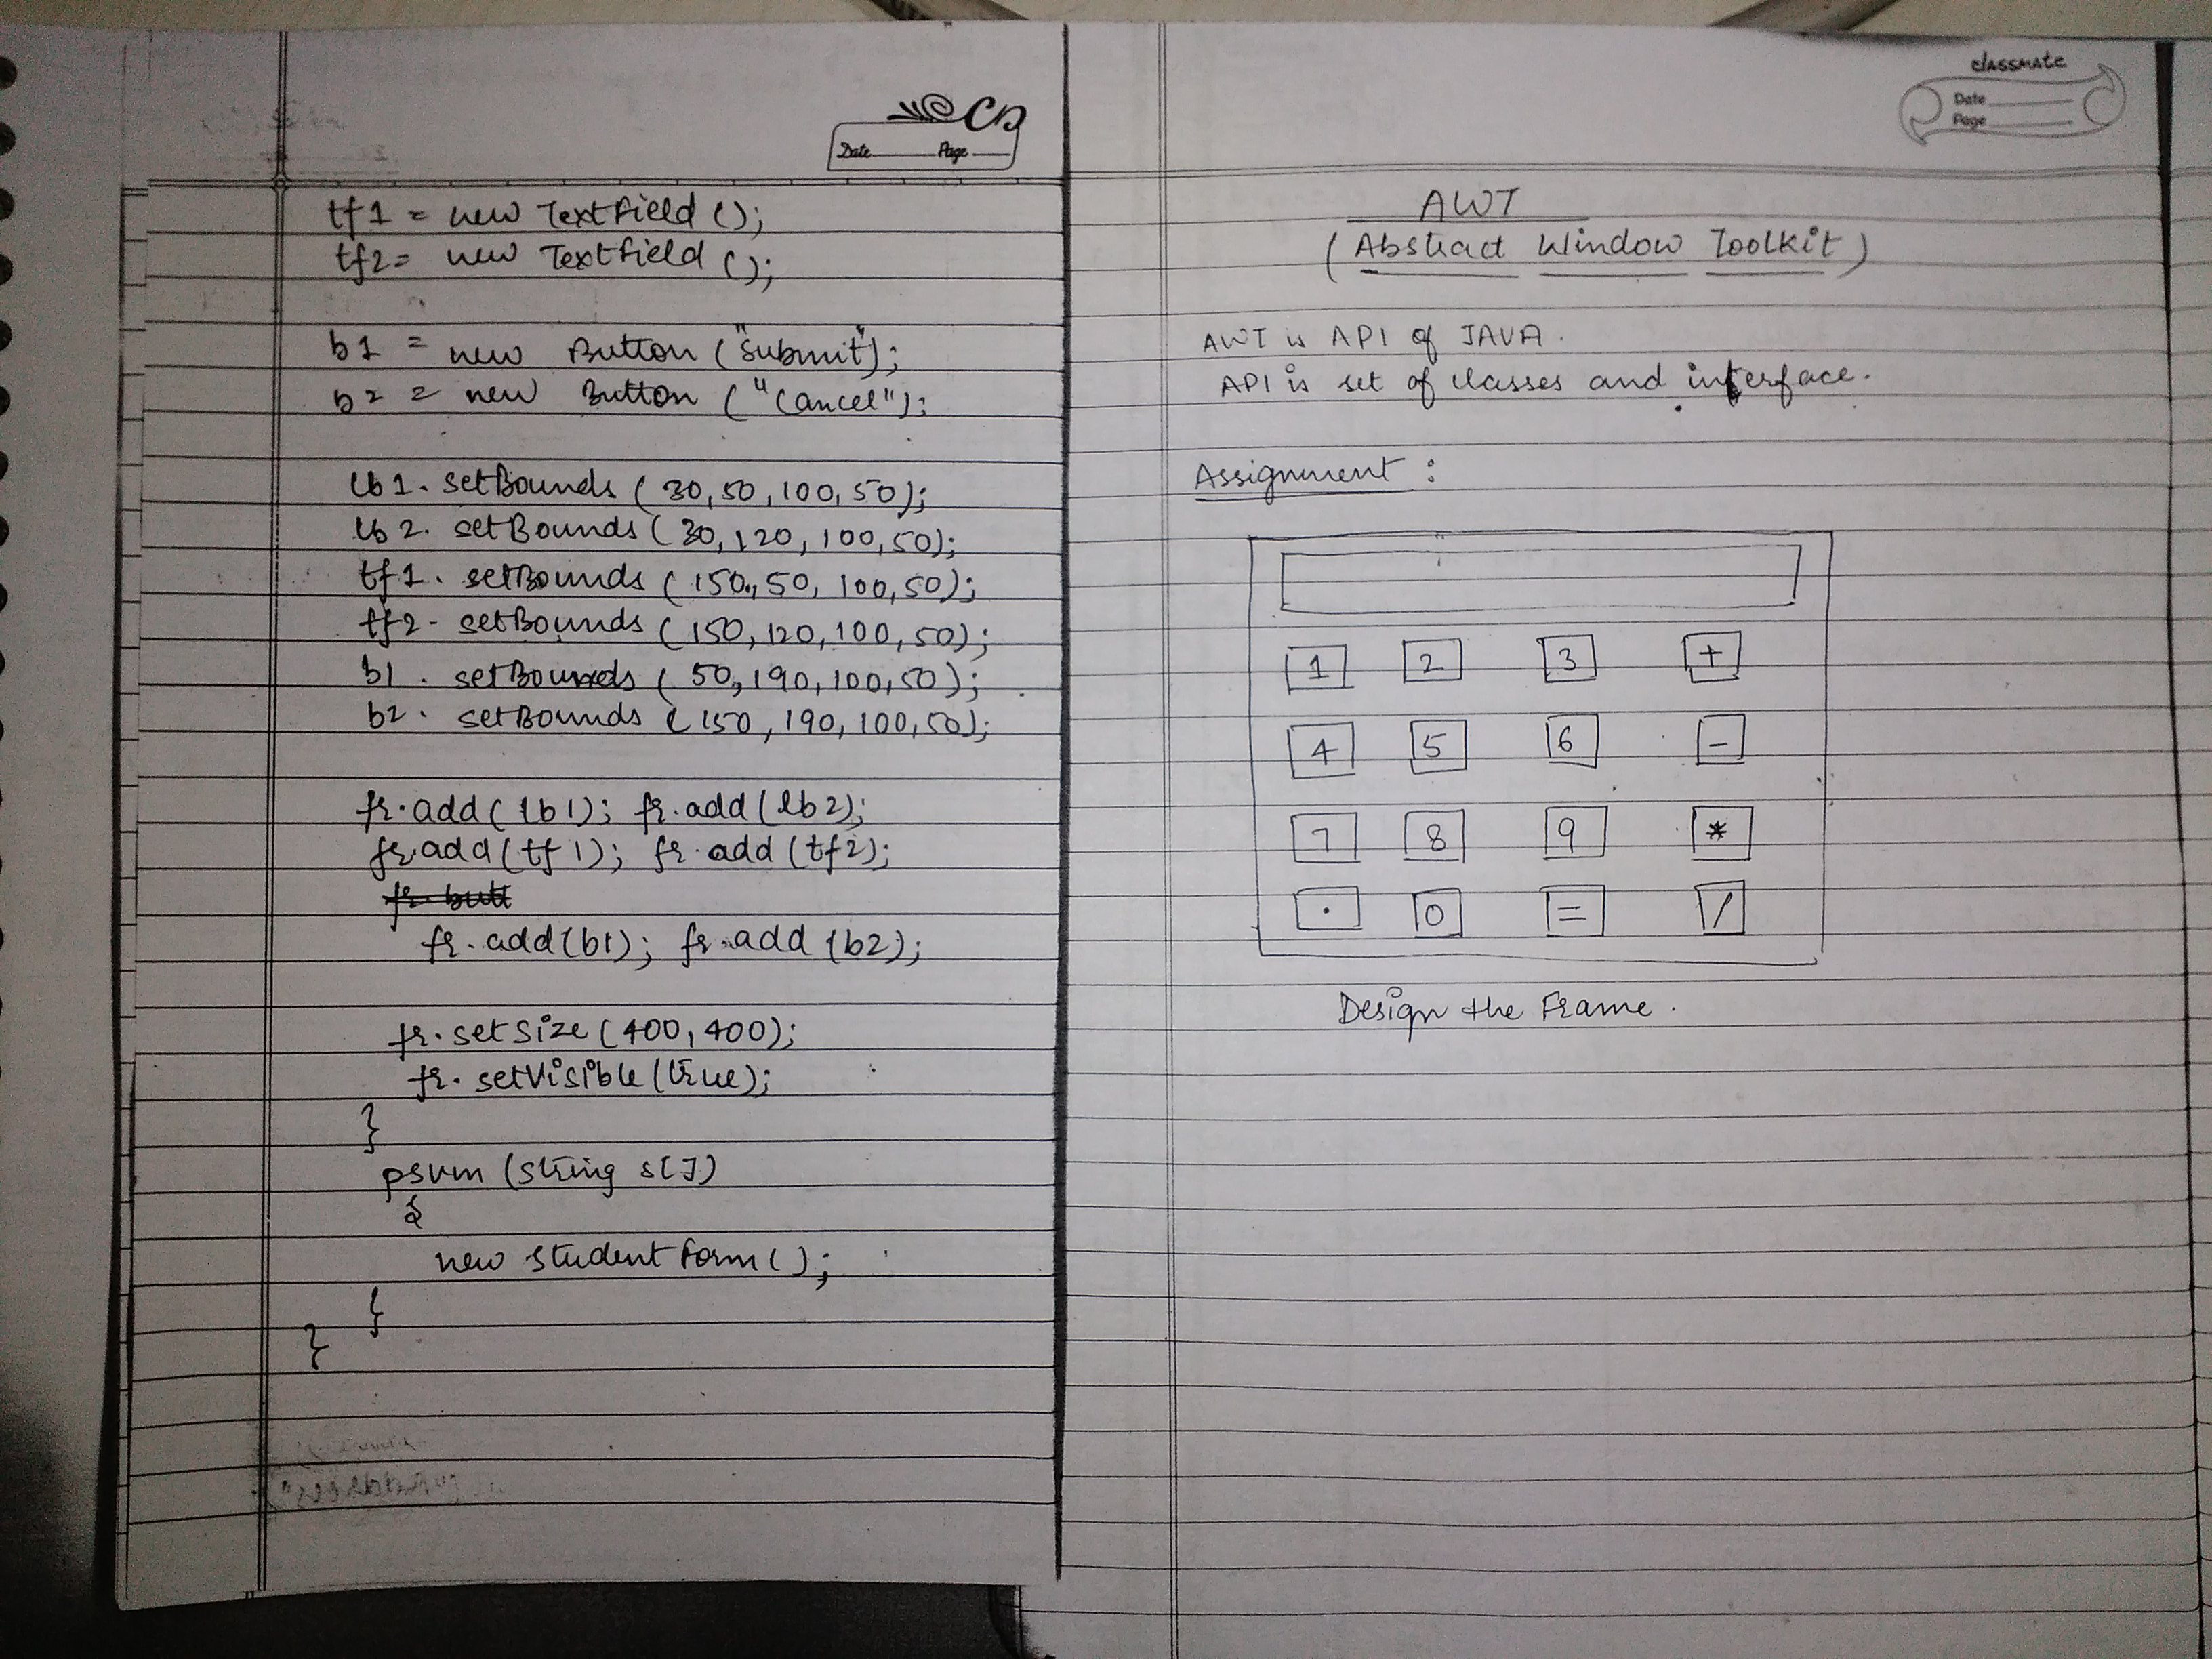 CD
Date Page
tf1 = new TextField ();
tf2 = new TextField ();
b1 = new Button ("Submit");
b2 = new Button ("Cancel");
lb1. setBounds (30,50,100,50);
lb2. setBounds (30,120,100,50);
tf1. setBounds (150,50,100,50);
tf2. setBounds (150,120,100,50);
b1. setBounds (50,190,100,50);
b2. setBounds (150,190,100,50);
fr.add(lb1); fr.add(lb2);
fr.add(tf1); fr.add(tf2);
fr.butt
fr.add(b1); fr.add(b2);
fr.setSize (400,400);
fr.setVisible (true);
}
psvm (String s[])
{
new StudentForm();
}
}
classmate
Date
Page
AWT
(Abstract Window Toolkit)
AWT is API of JAVA.
API is set of classes and interface.
Assignment :
1 2 3 +
4 5 6 -
7 8 9 *
. 0 = /
Design the Frame.